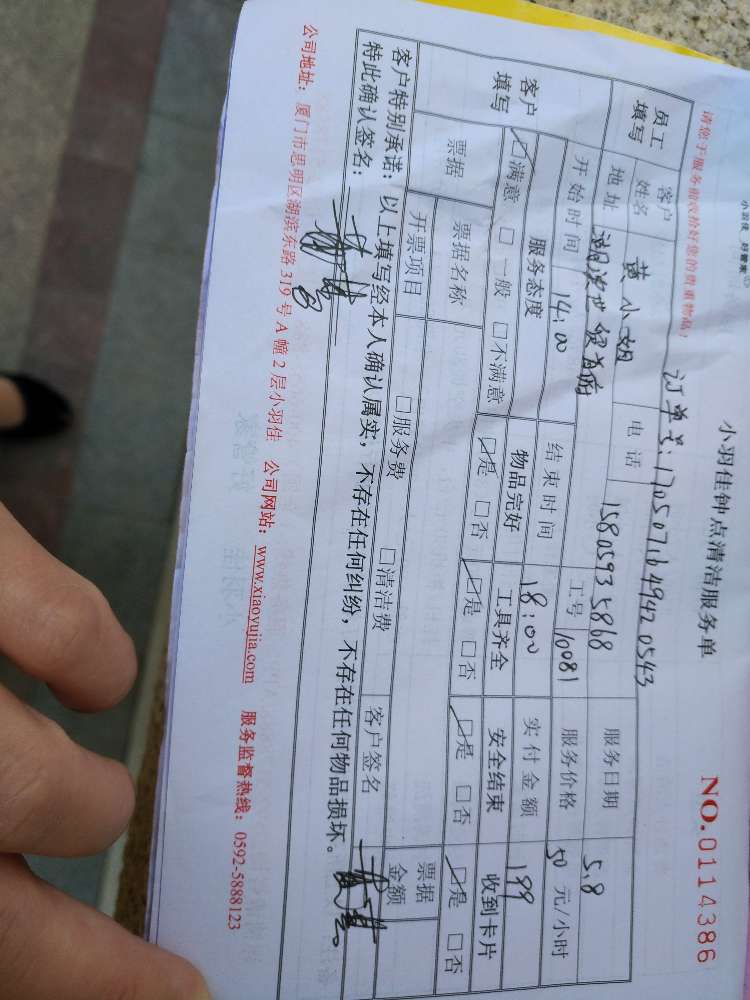 小羽佳 好管家
小羽佳钟点清洁服务单
NO.0114386
请您于服务前收拾好您的贵重物品!
订单号:17050716494420543
员工填写 客户姓名 黄小姐 电话 15805935868 服务日期 5.8
地址 湖滨世纪首府 工号 10081 服务价格 50 元/小时
客户填写 开始时间 14:00 结束时间 18:00 实付金额 199
服务态度 物品完好 工具齐全 安全结束 收到卡片
☑满意 □一般 □不满意 ☑是 □否 ☑是 □否 ☑是 □否 ☑是 □否
票据 票据名称 票据金额
开票项目 □服务费 □清洁费 客户签名
客户特别承诺:以上填写经本人确认属实,不存在任何纠纷,不存在任何物品损坏。
特此确认签名:
公司地址:厦门市思明区湖滨东路 319 号 A 幢 2 层小羽佳 公司网站:www.xiaoyujia.com 服务监督热线:0592-5888123